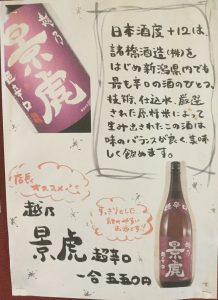 越乃
景虎
超辛口
日本酒度+12は、
諸橋酒造(株)を
はじめ新潟県内でも
最も辛口の酒のひとつ。
技術、仕込水、厳選
された原料米によって
生み出されたこの酒は
味のバランスが良く美味
しく飲めます。
店長
オススメ!!
すっきりとして
飲みやすい
お酒です!
越乃
景虎 超辛口
一合 五五〇円
超辛口
景虎